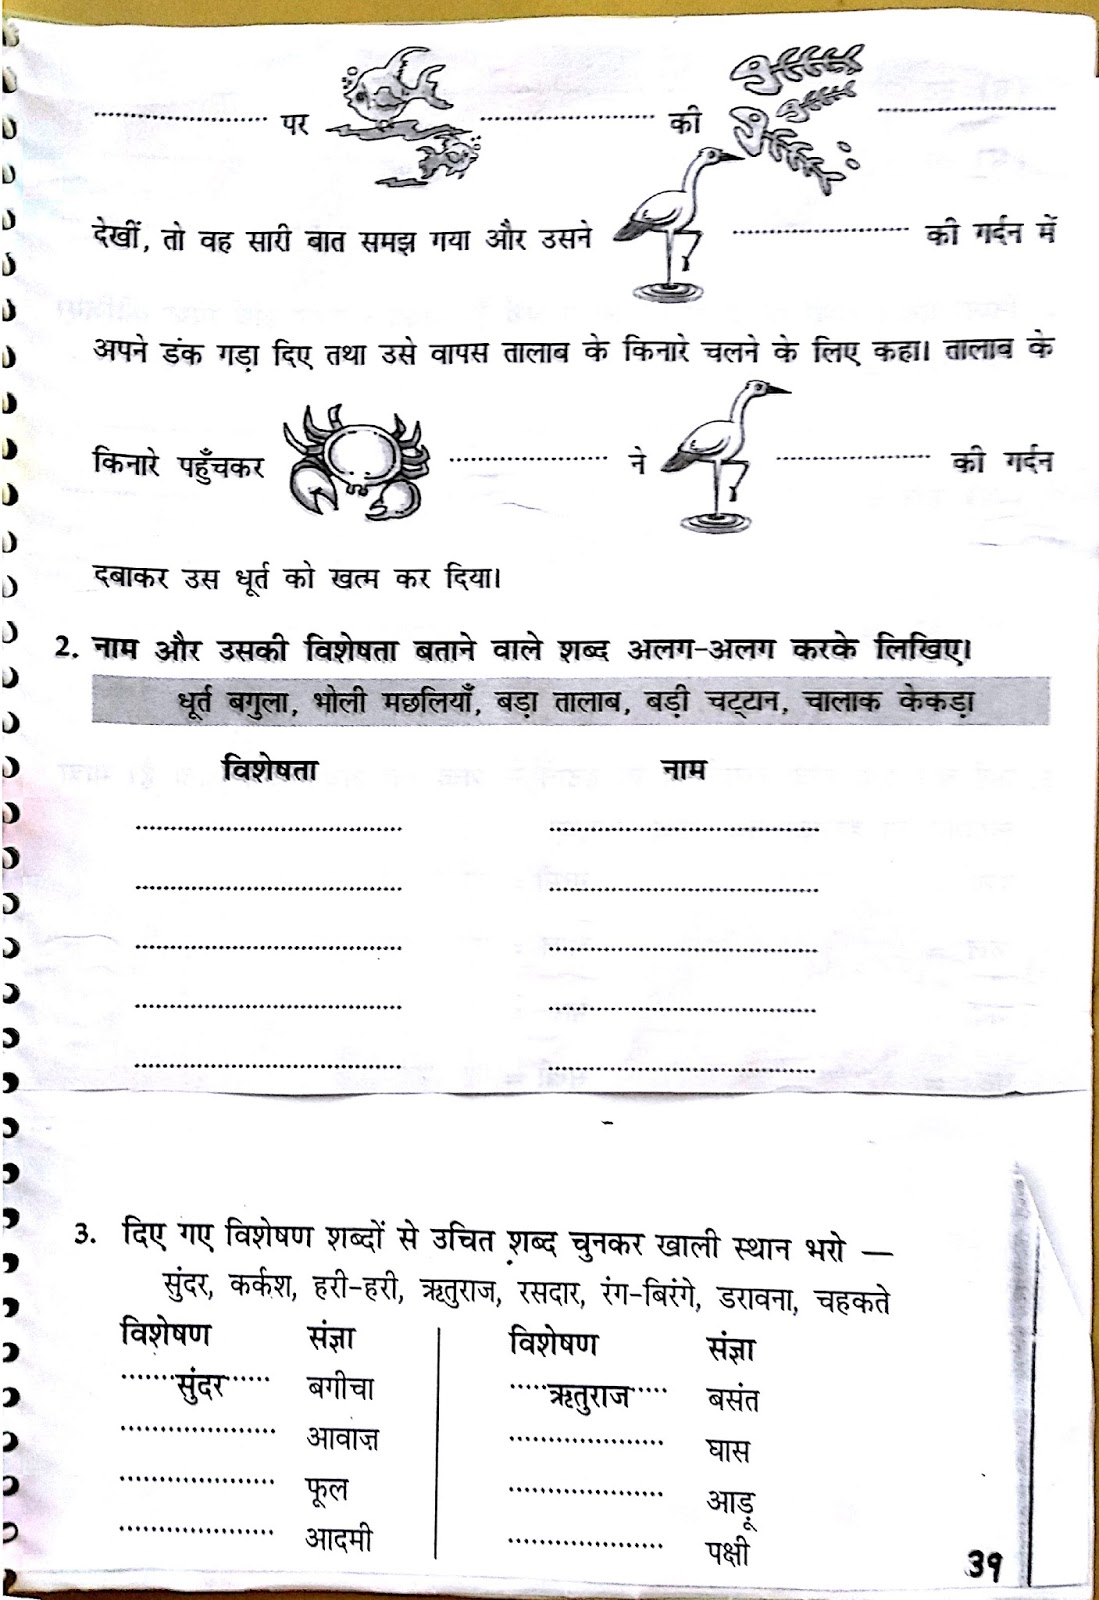 .............................. पर .............................. की ..............................
देखीं, तो वह सारी बात समझ गया और उसने .............................. की गर्दन में
अपने डंक गड़ा दिए तथा उसे वापस तालाब के किनारे चलने के लिए कहा। तालाब के
किनारे पहुँचकर .............................. ने .............................. की गर्दन
दबाकर उस धूर्त को खत्म कर दिया।
2. नाम और उसकी विशेषता बताने वाले शब्द अलग-अलग करके लिखिए।
धूर्त बगुला, भोली मछलियाँ, बड़ा तालाब, बड़ी चट्टान, चालाक केकड़ा
विशेषता नाम
3. दिए गए विशेषण शब्दों से उचित शब्द चुनकर खाली स्थान भरो —
सुंदर, कर्कश, हरी-हरी, ऋतुराज, रसदार, रंग-बिरंगे, डरावना, चहकते
विशेषण संज्ञा विशेषण संज्ञा
......सुंदर...... बगीचा ......ऋतुराज...... बसंत
.............................. आवाज़ .............................. घास
.............................. फूल .............................. आड़ू
.............................. आदमी .............................. पक्षी
39